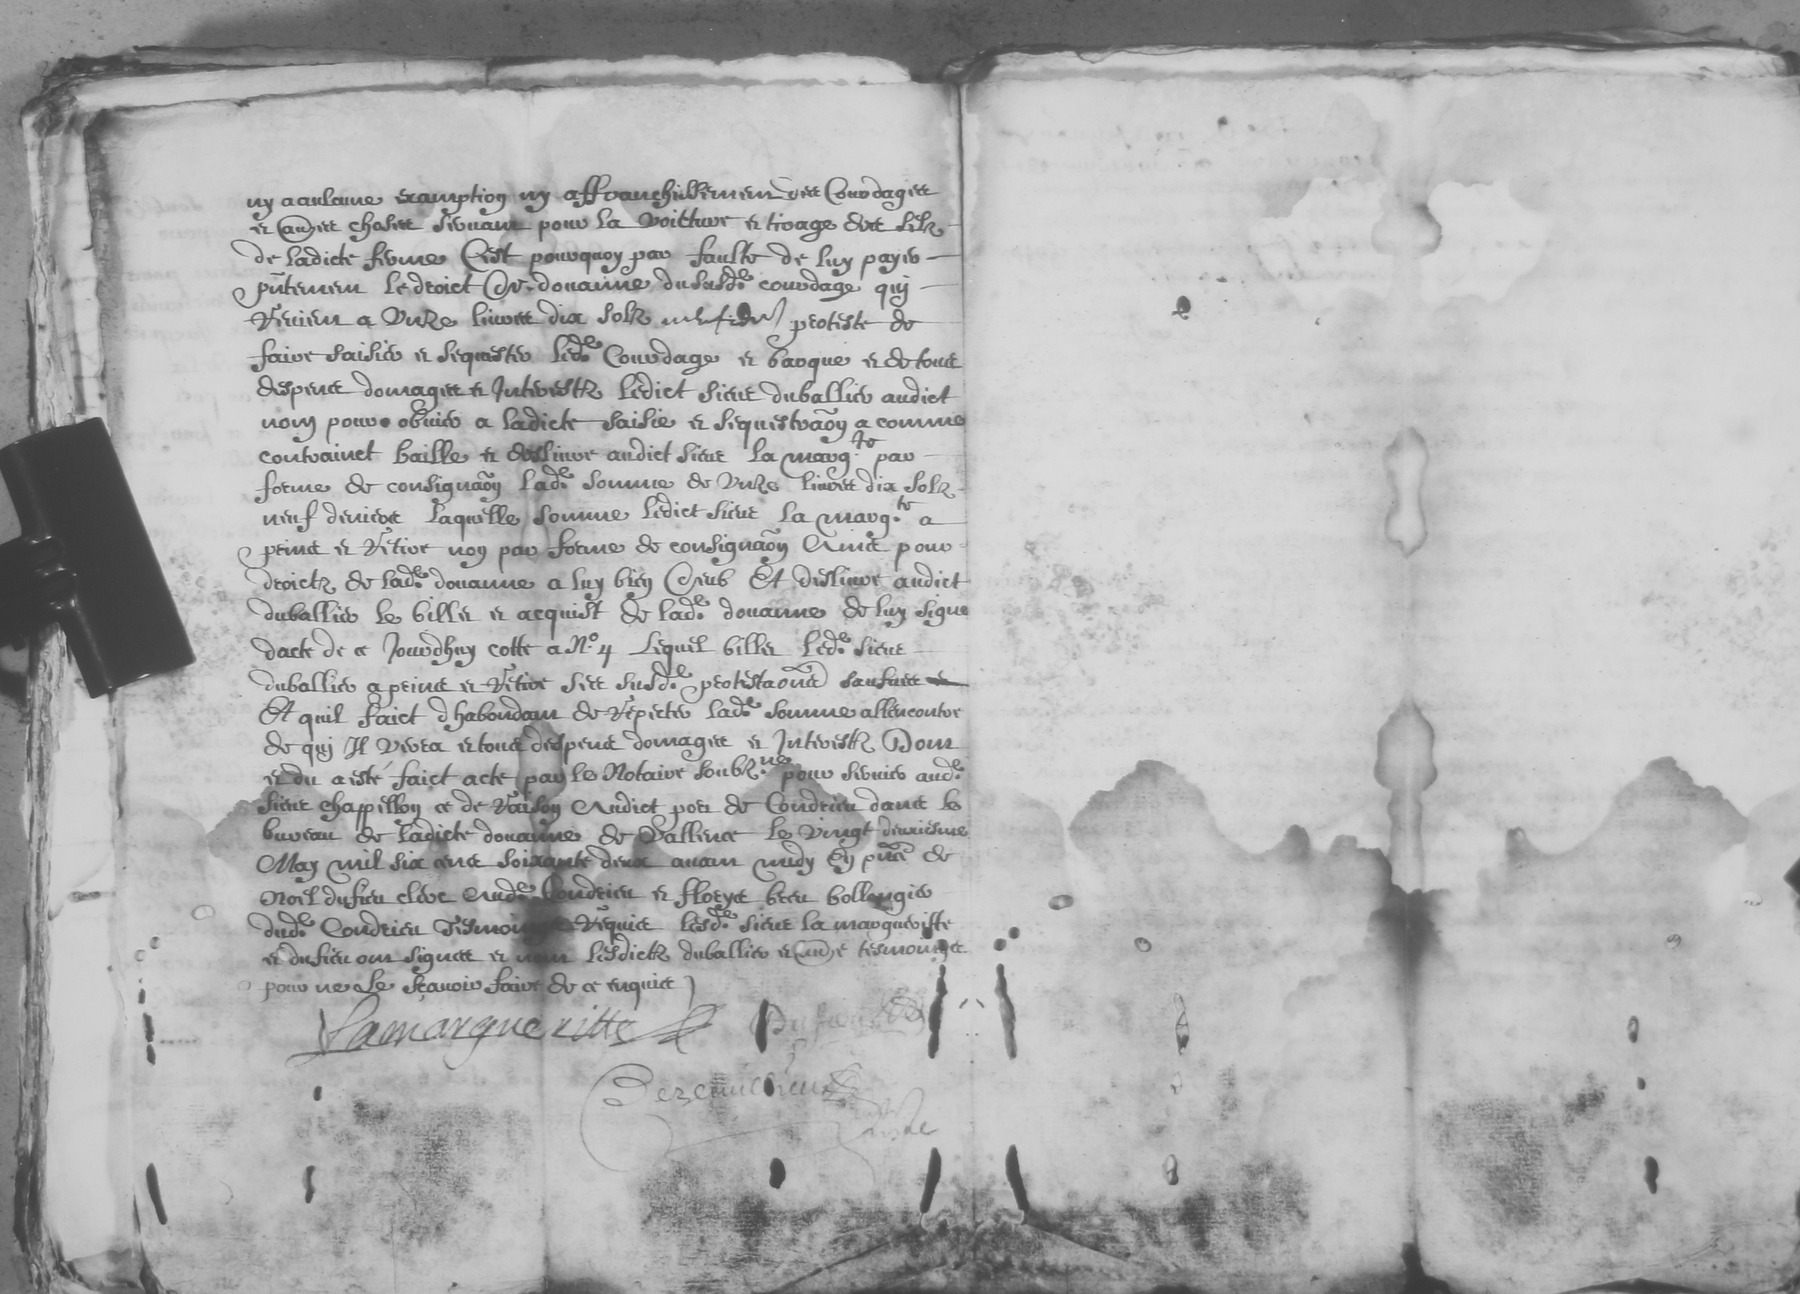 ny aulcune exemption ny affranchissement des Courdages
et aues choses servant pour la voicture et tirage des selz
de ladicte ferme C'est pourquoy par faulte de luy payer
pntement le droict de douanne dususd.e courdage quj
revient a unze livres dix solz proteste de
faire saisir et sequester led.e Courdage et barque et de tous
despens domages et Interestz ledict sieur duballier audict
nom pour obvier a ladicte saisie et sequestraon a comme
contrainct baille et deslivre audict sieur la marg.te par
forme de consignaon lad.e somme de unze livres dix solz
neuf deniers laquelle somme ledict sieur la marg.te a
prins et retire non par forme de consignaon Ains pour
droictz de lad.e douanne a luy bien deub Et deslivre audict
duballier le billet et acquist de lad.e douanne de luy signe
dacte de ce Jourdhuy cotte a N.o 4 Lequel billet led.e sieur
duballier a prins et retire ses susd.e protestaons saufves
Et quil faict d'habondant de repecter lad.e somme allencontre
de quj Il verra et tous despens domages et Interestz Dont
et du a esté faict acte par le Notaire soubz.ne pour servir aud.e
sieur chappillon ce de raison Audict port de Condrieu dans le
bureau de ladicte douanne de Vallence le vingt deuxiesme
May mil six cens soixante deux avant midy En pnce de
Noel dufieu clerc Aud.e Condrieu et floeys bollengier
dud.e Condrieu Tesmoings Requis lesd.e sieur la margueritte
et dufieu ont signes et non lesdictz duballier et aue tesmoings
pour ne le sçavoir faire de ce enquis
Lamargueritte Dufieu